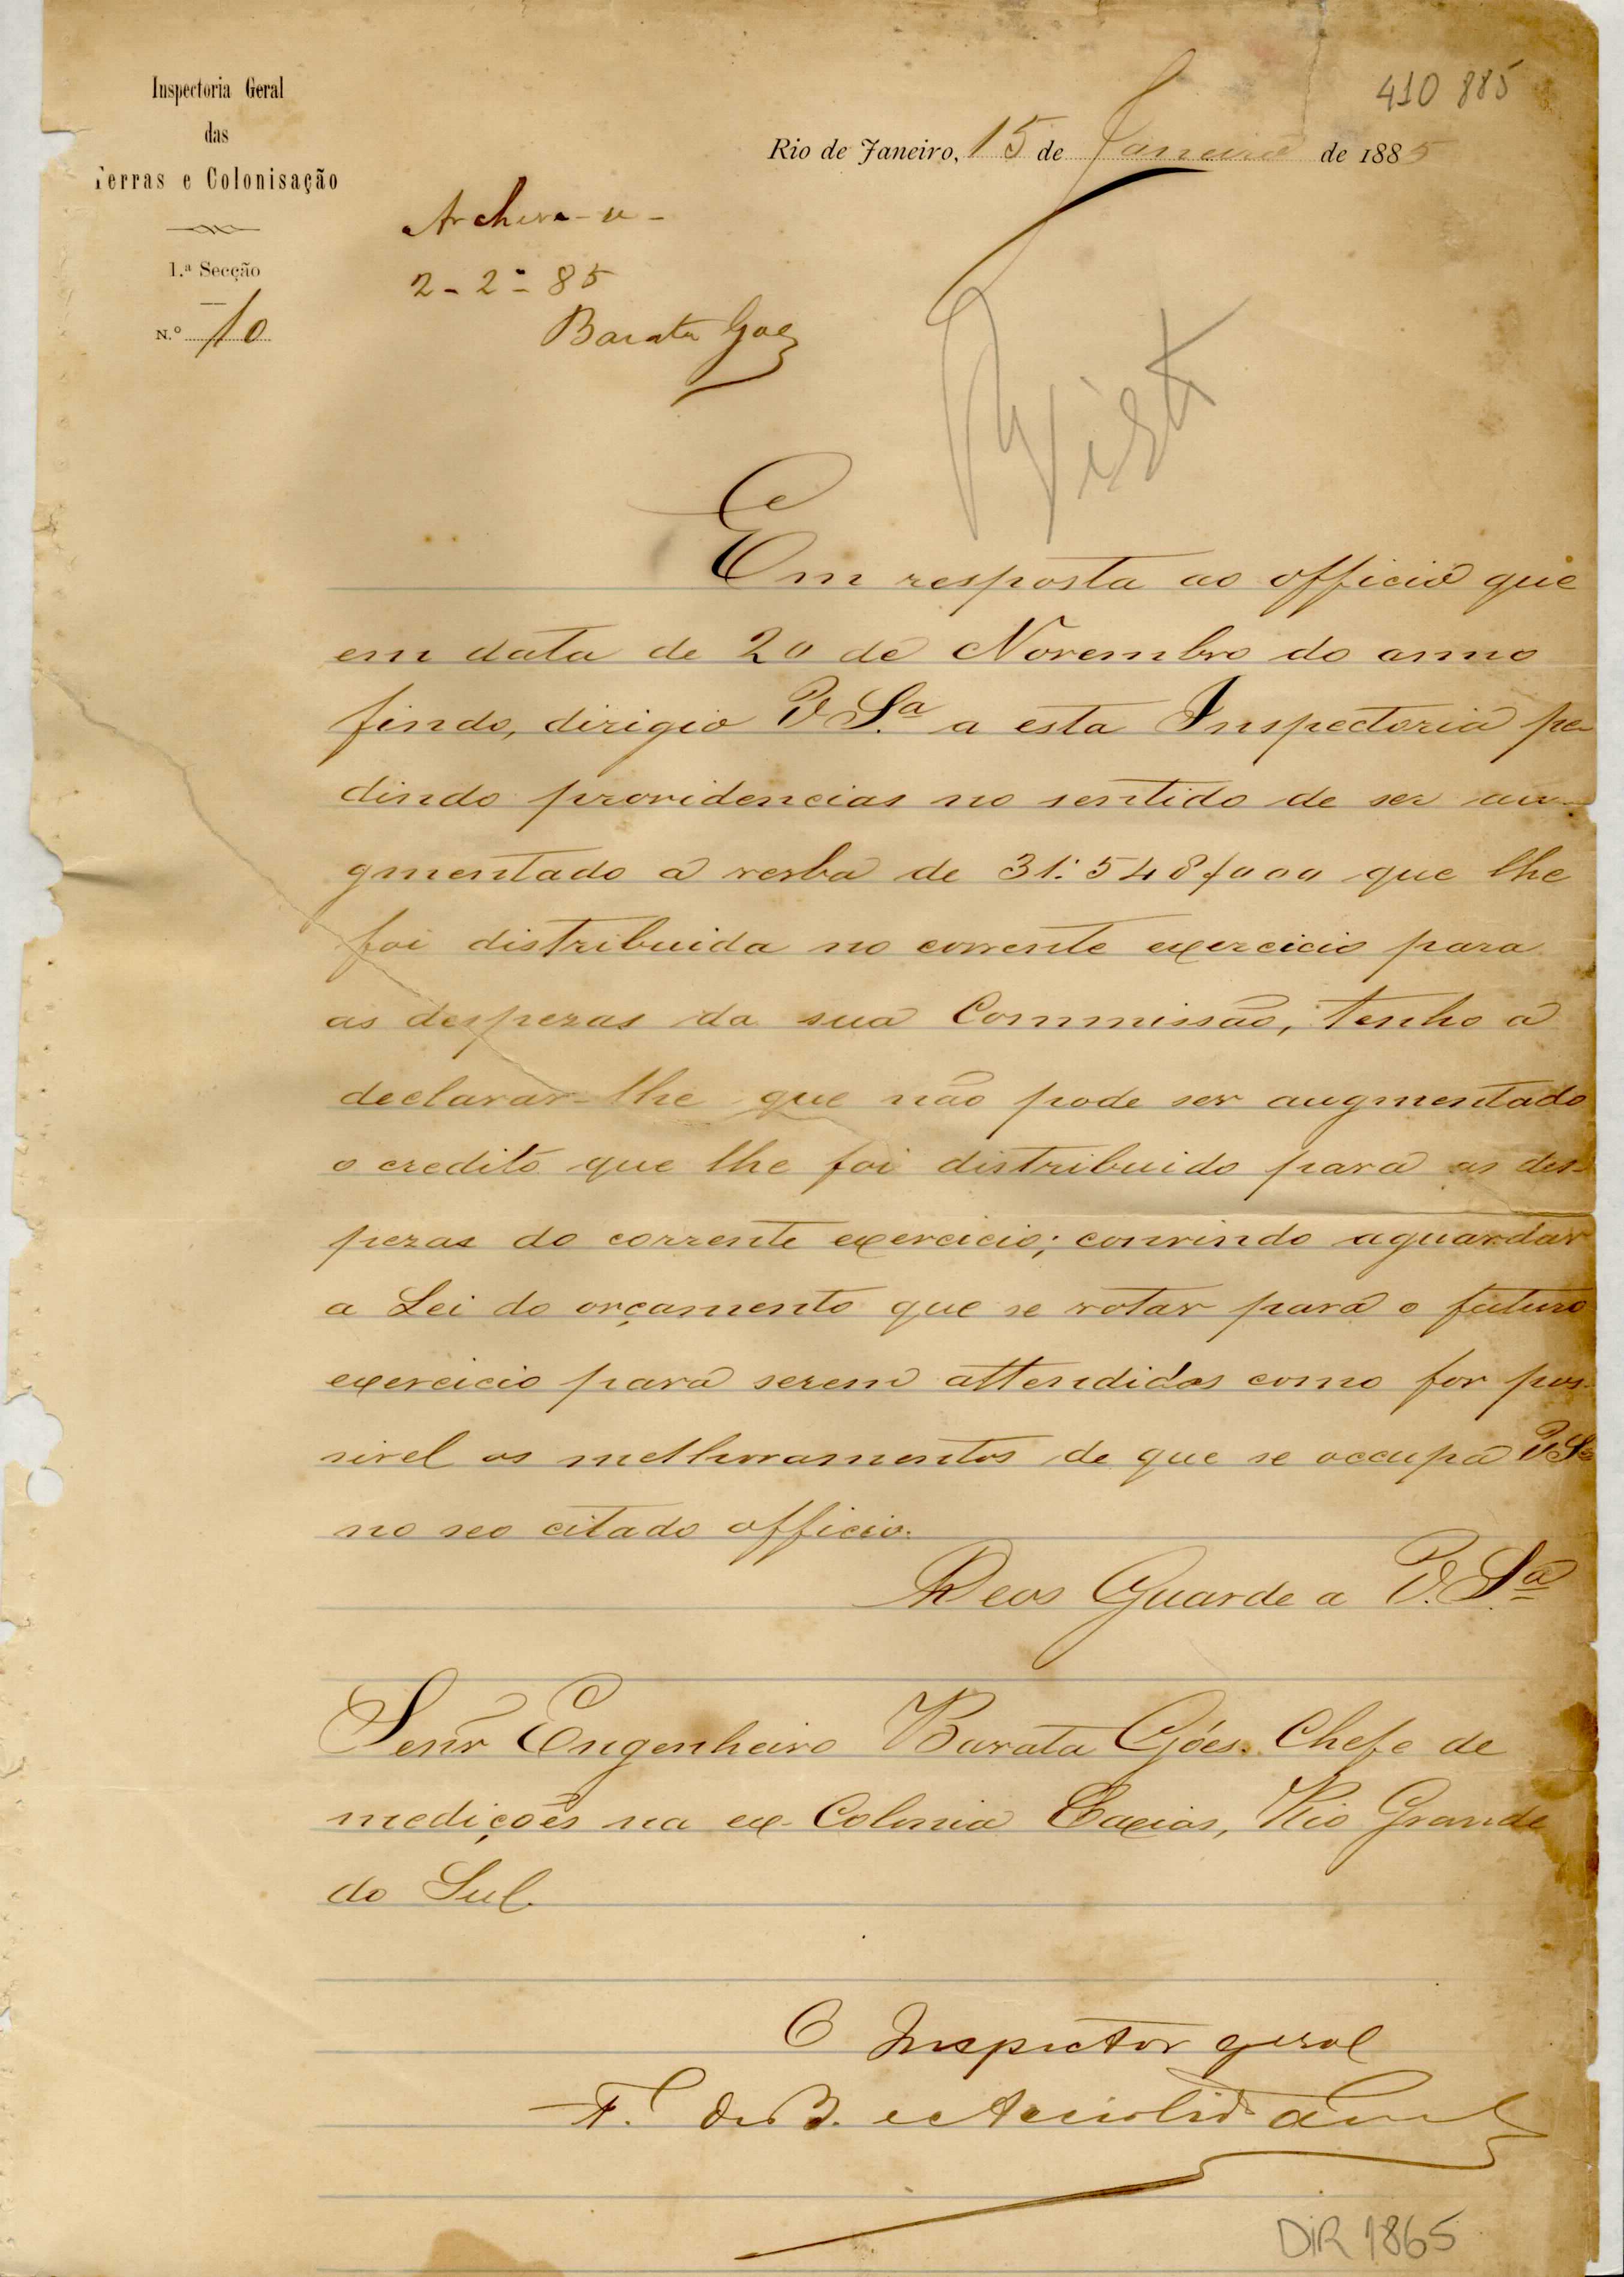 410 885
Inspectoria Geral
das
Terras e Colonisação
1.ª Secção
N.º 10
Rio de Janeiro, 15 de Janeiro de 1885
Archive-se-
2-2-85
Barata Goes
Visto
Em resposta ao officio que
em data de 20 de Novembro do anno
findo, dirigio V. S.ª a esta Inspectoria pe-
dindo providencias no sentido de ser au-
gmentado a verba de 31:548$000 que lhe
foi distribuida no corrente exercicio para
as despezas da sua Commissão, tenho a
declarar-lhe que não pode ser augmentado
o credito que lhe foi distribuido para as des-
pezas do corrente exercicio; convindo aguardar
a Lei do orçamento que se votar para o futuro
exercicio para serem attendidos como for pos-
sivel os melhoramentos de que se occupa V. S.ª
no seo citado officio.
Deos Guarde a V. S.ª
Senr Engenheiro Barata Góes. Chefe de
medições na ex-Colonia Caxias, Rio Grande
do Sul.
O Inspector geral
F. de B. e Accioli de
DIR 1865